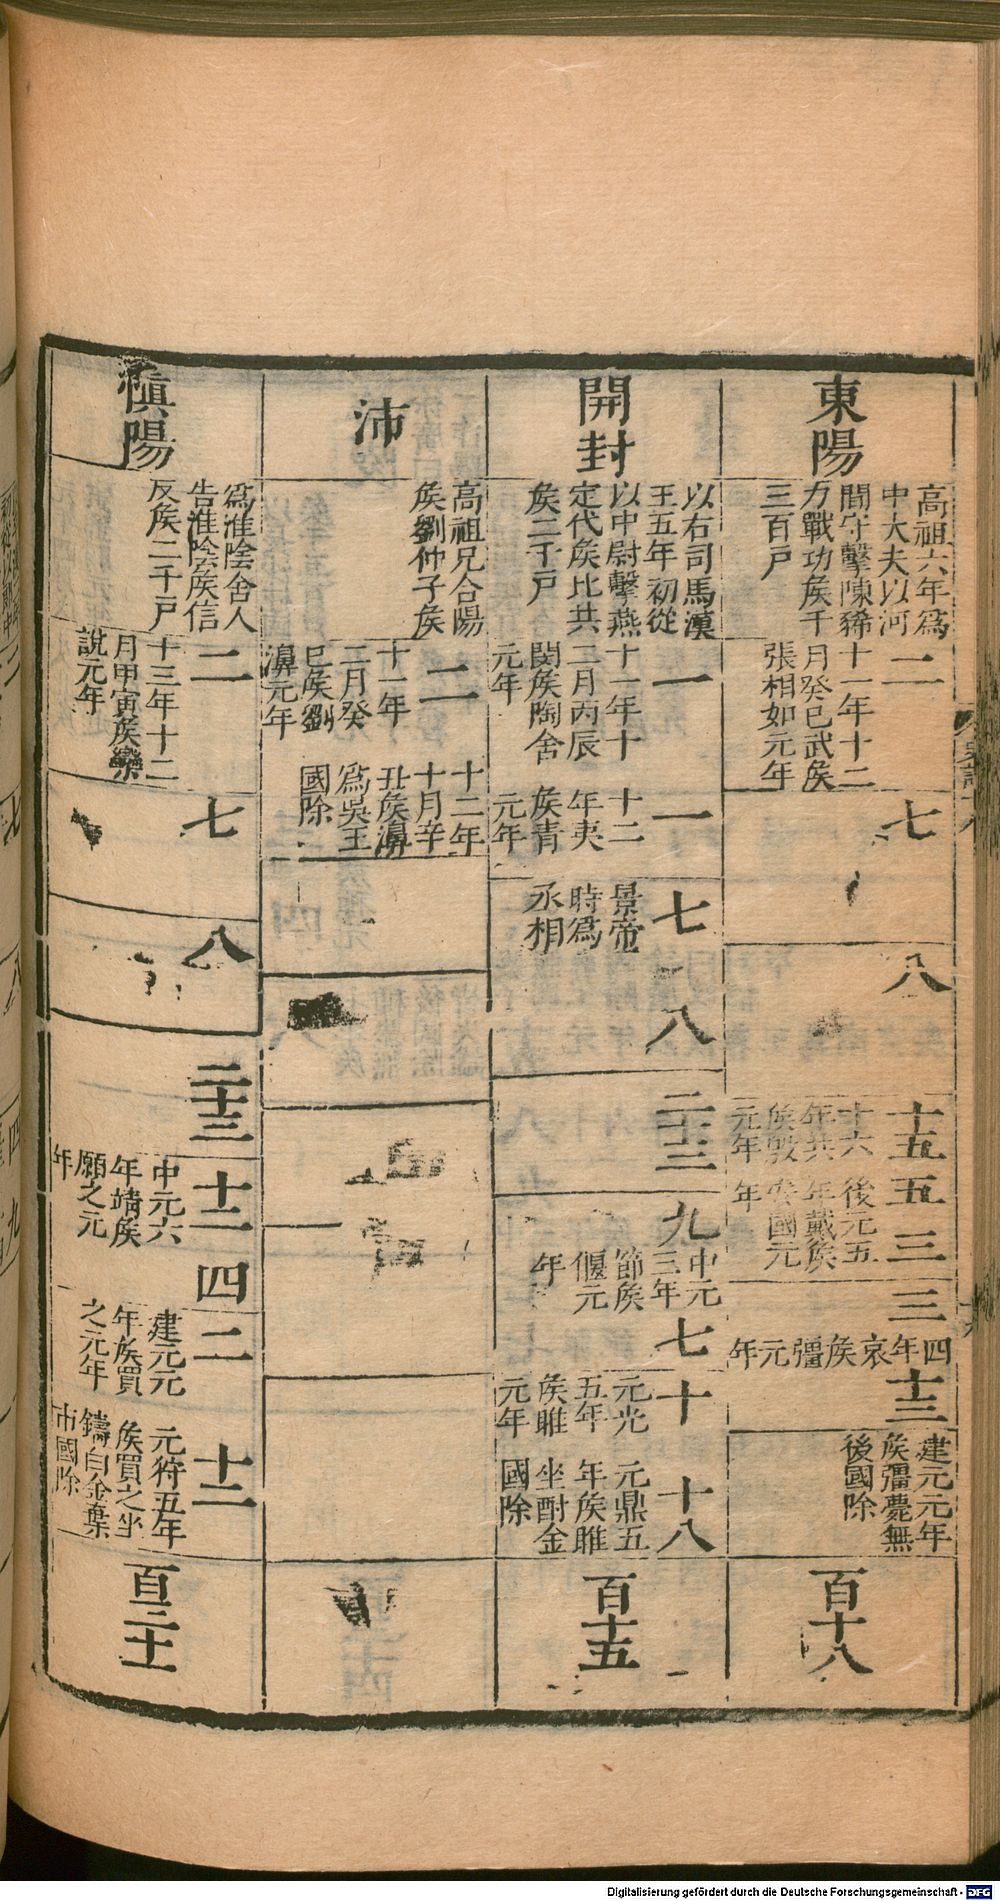 東陽
高祖六年爲
中大夫以河
間守擊陳豨
力戰功矦千
三百戸
二
十一年十二
月癸巳武矦
張相如元年
七
八
十五
十六
年共
矦殷
元年
五
後元五
年戴矦
安國元
年
三
三
四年哀矦彊元年
十三
建元元年
矦彊薨無
後國除
百十八
開封
以右司馬漢
王五年初從
以中尉擊燕
定代矦比共
矦二千戸
一
十一年十
二月丙辰
閔矦陶舍
元年
一
十二
年夷
矦青
元年
七
景帝
時爲
丞相
八
二十三
九
中元
三年
節矦
偃元
年
七
十
元光
五年
矦睢
元年
十八
元鼎五
年矦睢
坐酎金
國除
百十五
沛
高祖兄合陽
矦劉仲子矦
二
十一年
二月癸
巳矦劉
濞元年
十二年
十月辛
丑矦濞
爲吳王
國除
慎陽
爲淮陰舍人
告淮陰矦信
反矦二千戸
二
十三年十二
月甲寅矦欒
說元年
七
八
二十三
十二
中元六
年靖矦
願之元
年
四
二
建元元
年矦買
之元年
十二
元狩五年
矦買之坐
鑄白金棄
市國除
百三十一
Digitalisierung gefördert durch die Deutsche Forschungsgemeinschaft - DFG